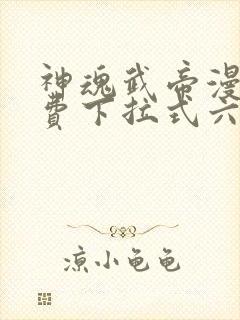 神魂武帝漫
费下拉式六
凉小龟龟